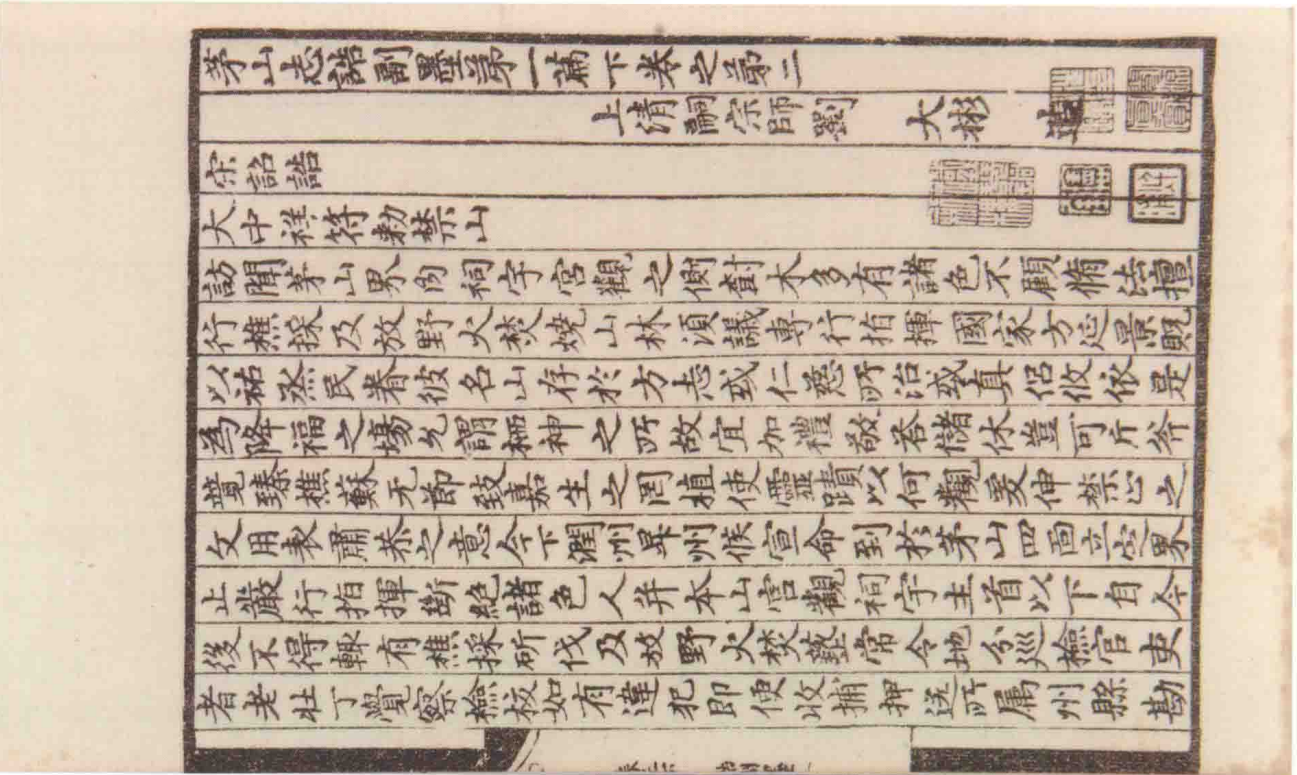 茅山志誥副墨第一篇下卷之第二
上清嗣宗師劉大彬造
宋詔誥
大中祥符勑禁山
訪聞茅山界内祠宇宮觀之側樹木多有諸色不顧條法擅
行樵採及放野火焚燒山林須議專行指揮國家方延景貺
以祐烝民眷彼名山存於方志或仁慈所治或真侶攸依是
為降福之場允謂栖神之所故宜加禮敬荅儲休豈可斤斧
竞臻樵蘇无節致嘉生之罔植使靈蹟以何觀爰伸禁止之
文用表肅恭之意今下潤州昇州候宣命到於茅山四面立定界
止嚴行指揮斷絶諸色人并本山宮觀祠宇主首以下自今
後不得輙有樵採斫伐及放野火焚爇常令地分巡檢官吏
耆老壯丁覺察檢校如有違犯即便收捕押送所属州縣勘